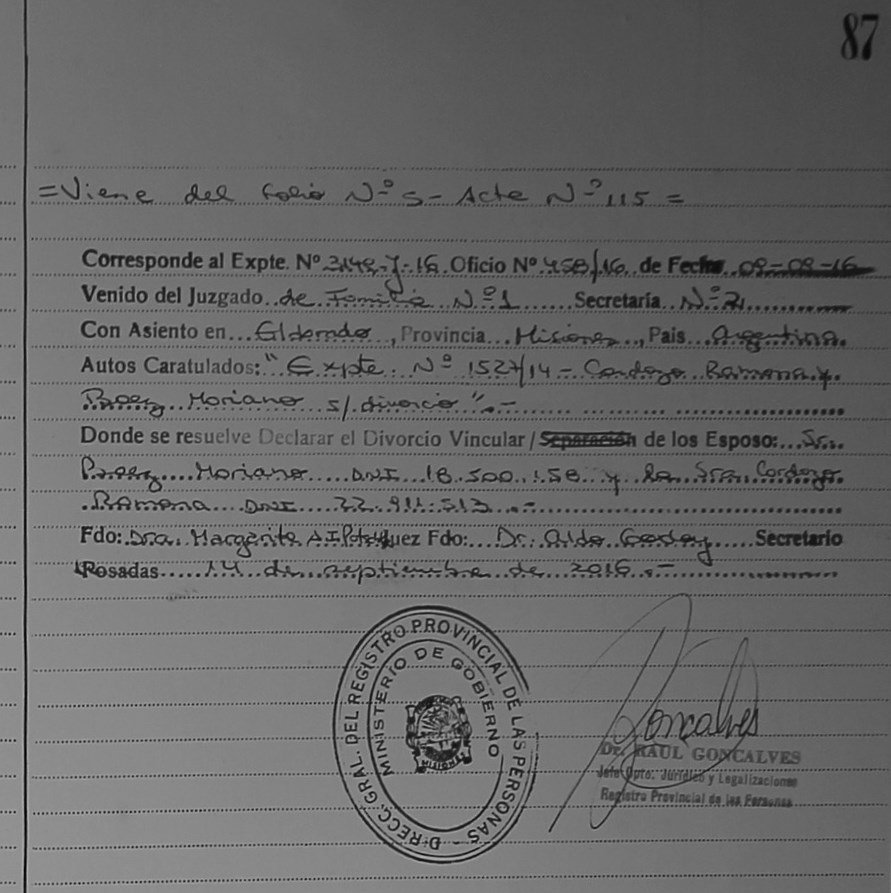 87
=Viene del folio Nº 5- Acta Nº 115 =
Corresponde al Expte. Nº 3148-J-16 Oficio Nº 458/16 de Fecha 09-09-16
Venido del Juzgado de Familia Nº 1 Secretaría Nº 2
Con Asiento en Eldorado, Provincia Misiones, Pais Argentina.
Autos Caratulados: "Expte Nº 1527/14 - Cardozo Ramona y
Baez Mariano s/ divorcio".-
Donde se resuelve Declarar el Divorcio Vincular / Separación de los Esposo: Sr.
Baez Mariano DNI 18.500.158 y la Sra. Cardozo
Ramona DNI 22.911.513 .-
Fdo: Dra. Margarita A. Fdo: Dr. Aldo Secretario
Posadas 14 de septiembre de 2016.-
DIRECC. GRAL. DEL REGISTRO PROVINCIAL DE LAS PERSONAS -
MINISTERIO DE GOBIERNO
Goncalves
Dr. RAUL GONCALVES
Jefe Dpto. Jurídico y Legalizaciones
Registro Provincial de las Personas